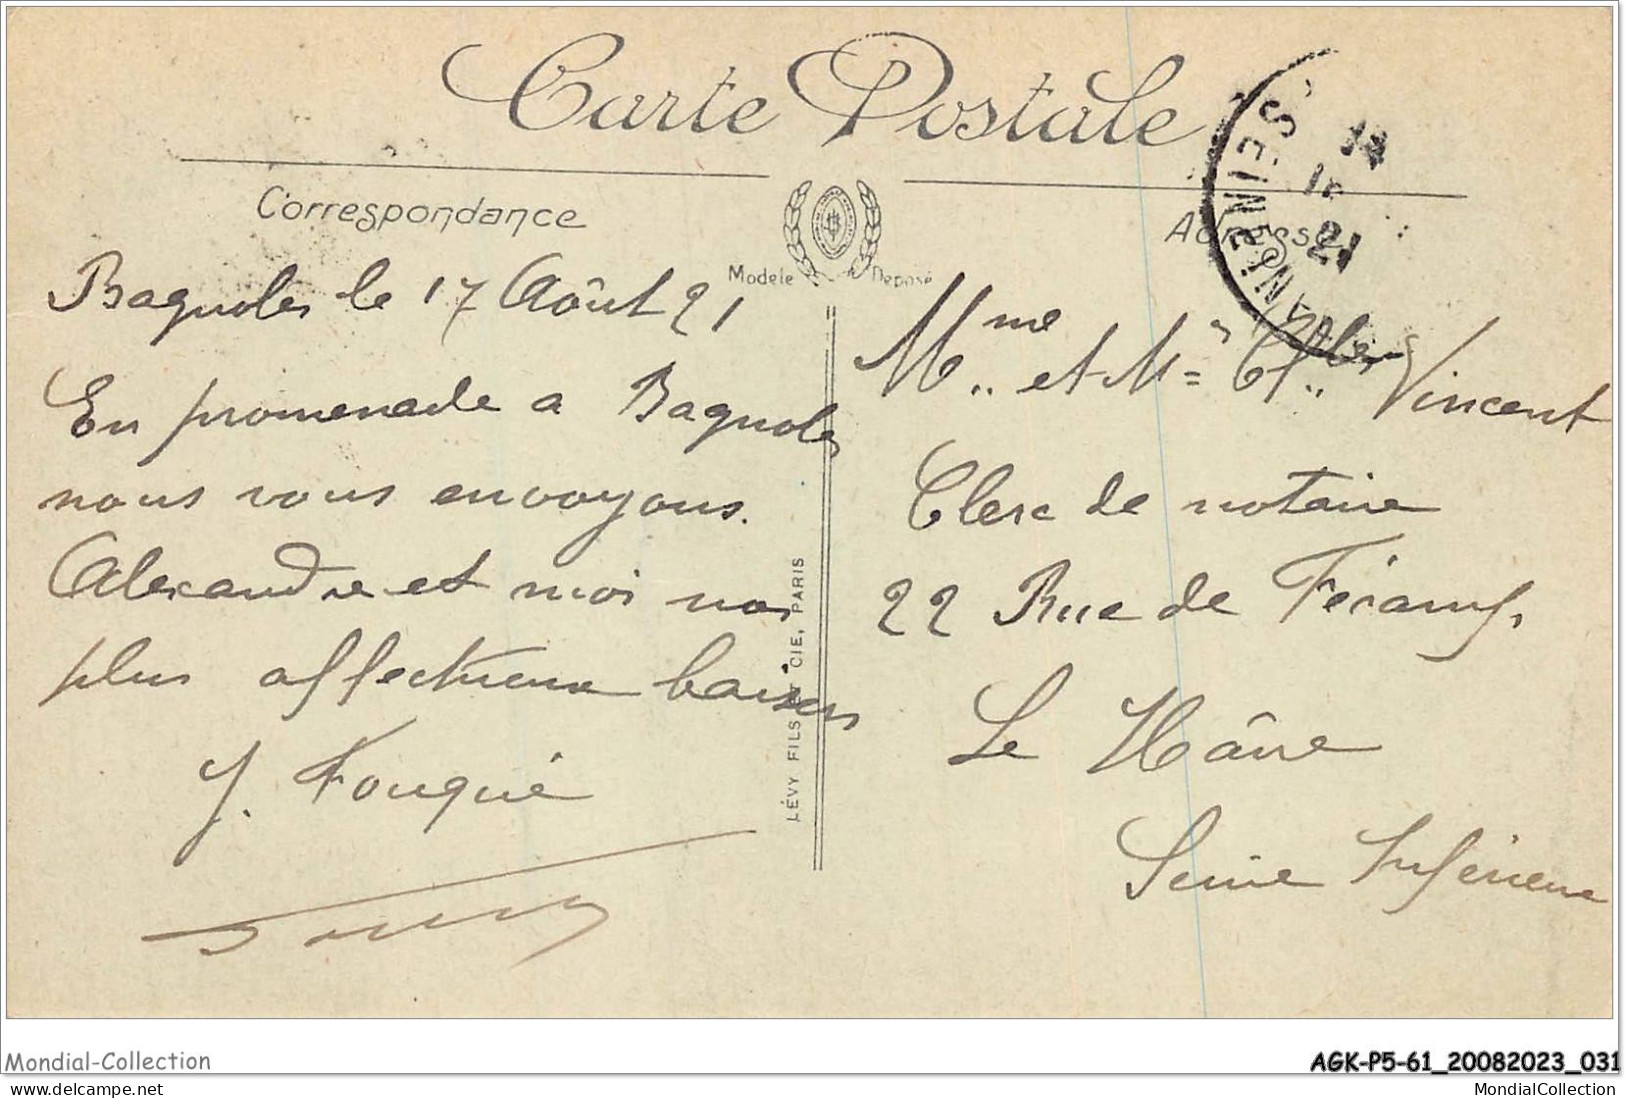 Carte Postale
Correspondance
Adresse
Modèle Déposé
LÉVY FILS ET CIE, PARIS
Bagnoles le 17 Août 21
En promenade a Bagnoles
nous vous envoyons.
Alexandre et moi nos
plus affectueux baisers
J. Fouquié
Mme et Mr Ch.les Vincent
Clerc de notaire
22 Rue de Fécamp.
Le Hâvre
Seine Inférieure
21
Mondial-Collection
AGK-P5-61_20082023_031
www.delcampe.net
MondialCollection